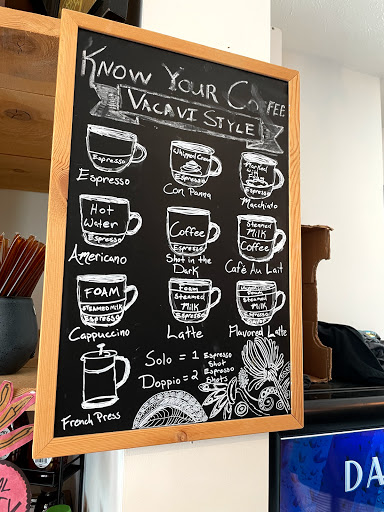 Know Your Coffee
Vacavi Style
Espresso
Espresso
Whipped Cream
Espresso
Con Panna
Marked
With
Espresso
Macchiato
Hot
Water
Espresso
Americano
Coffee
Espresso
Shot in the
Dark
Steamed
Milk
Coffee
Café Au Lait
FOAM
STEAMED MILK
Espresso
Cappuccino
Foam
Steamed
Milk
Espresso
Latte
Steamed
Milk
Espresso
Flavored Latte
French Press
Solo = 1 Espresso
Shot
Doppio = 2 Espresso
Shots
DA